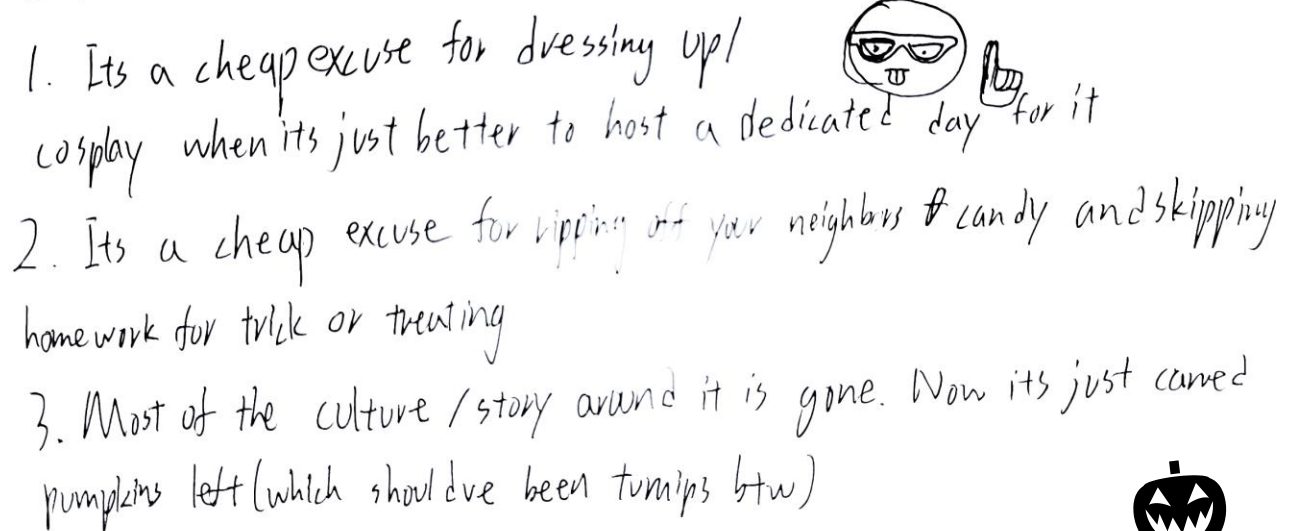 1. Its a cheap excuse for dressing up/
cosplay when its just better to host a dedicated day for it
2. Its a cheap excuse for ripping off your neighbors candy and skipping
homework for trick or treating
3. Most of the culture / story around it is gone. Now its just carved
pumpkins left (which should've been turnips btw)